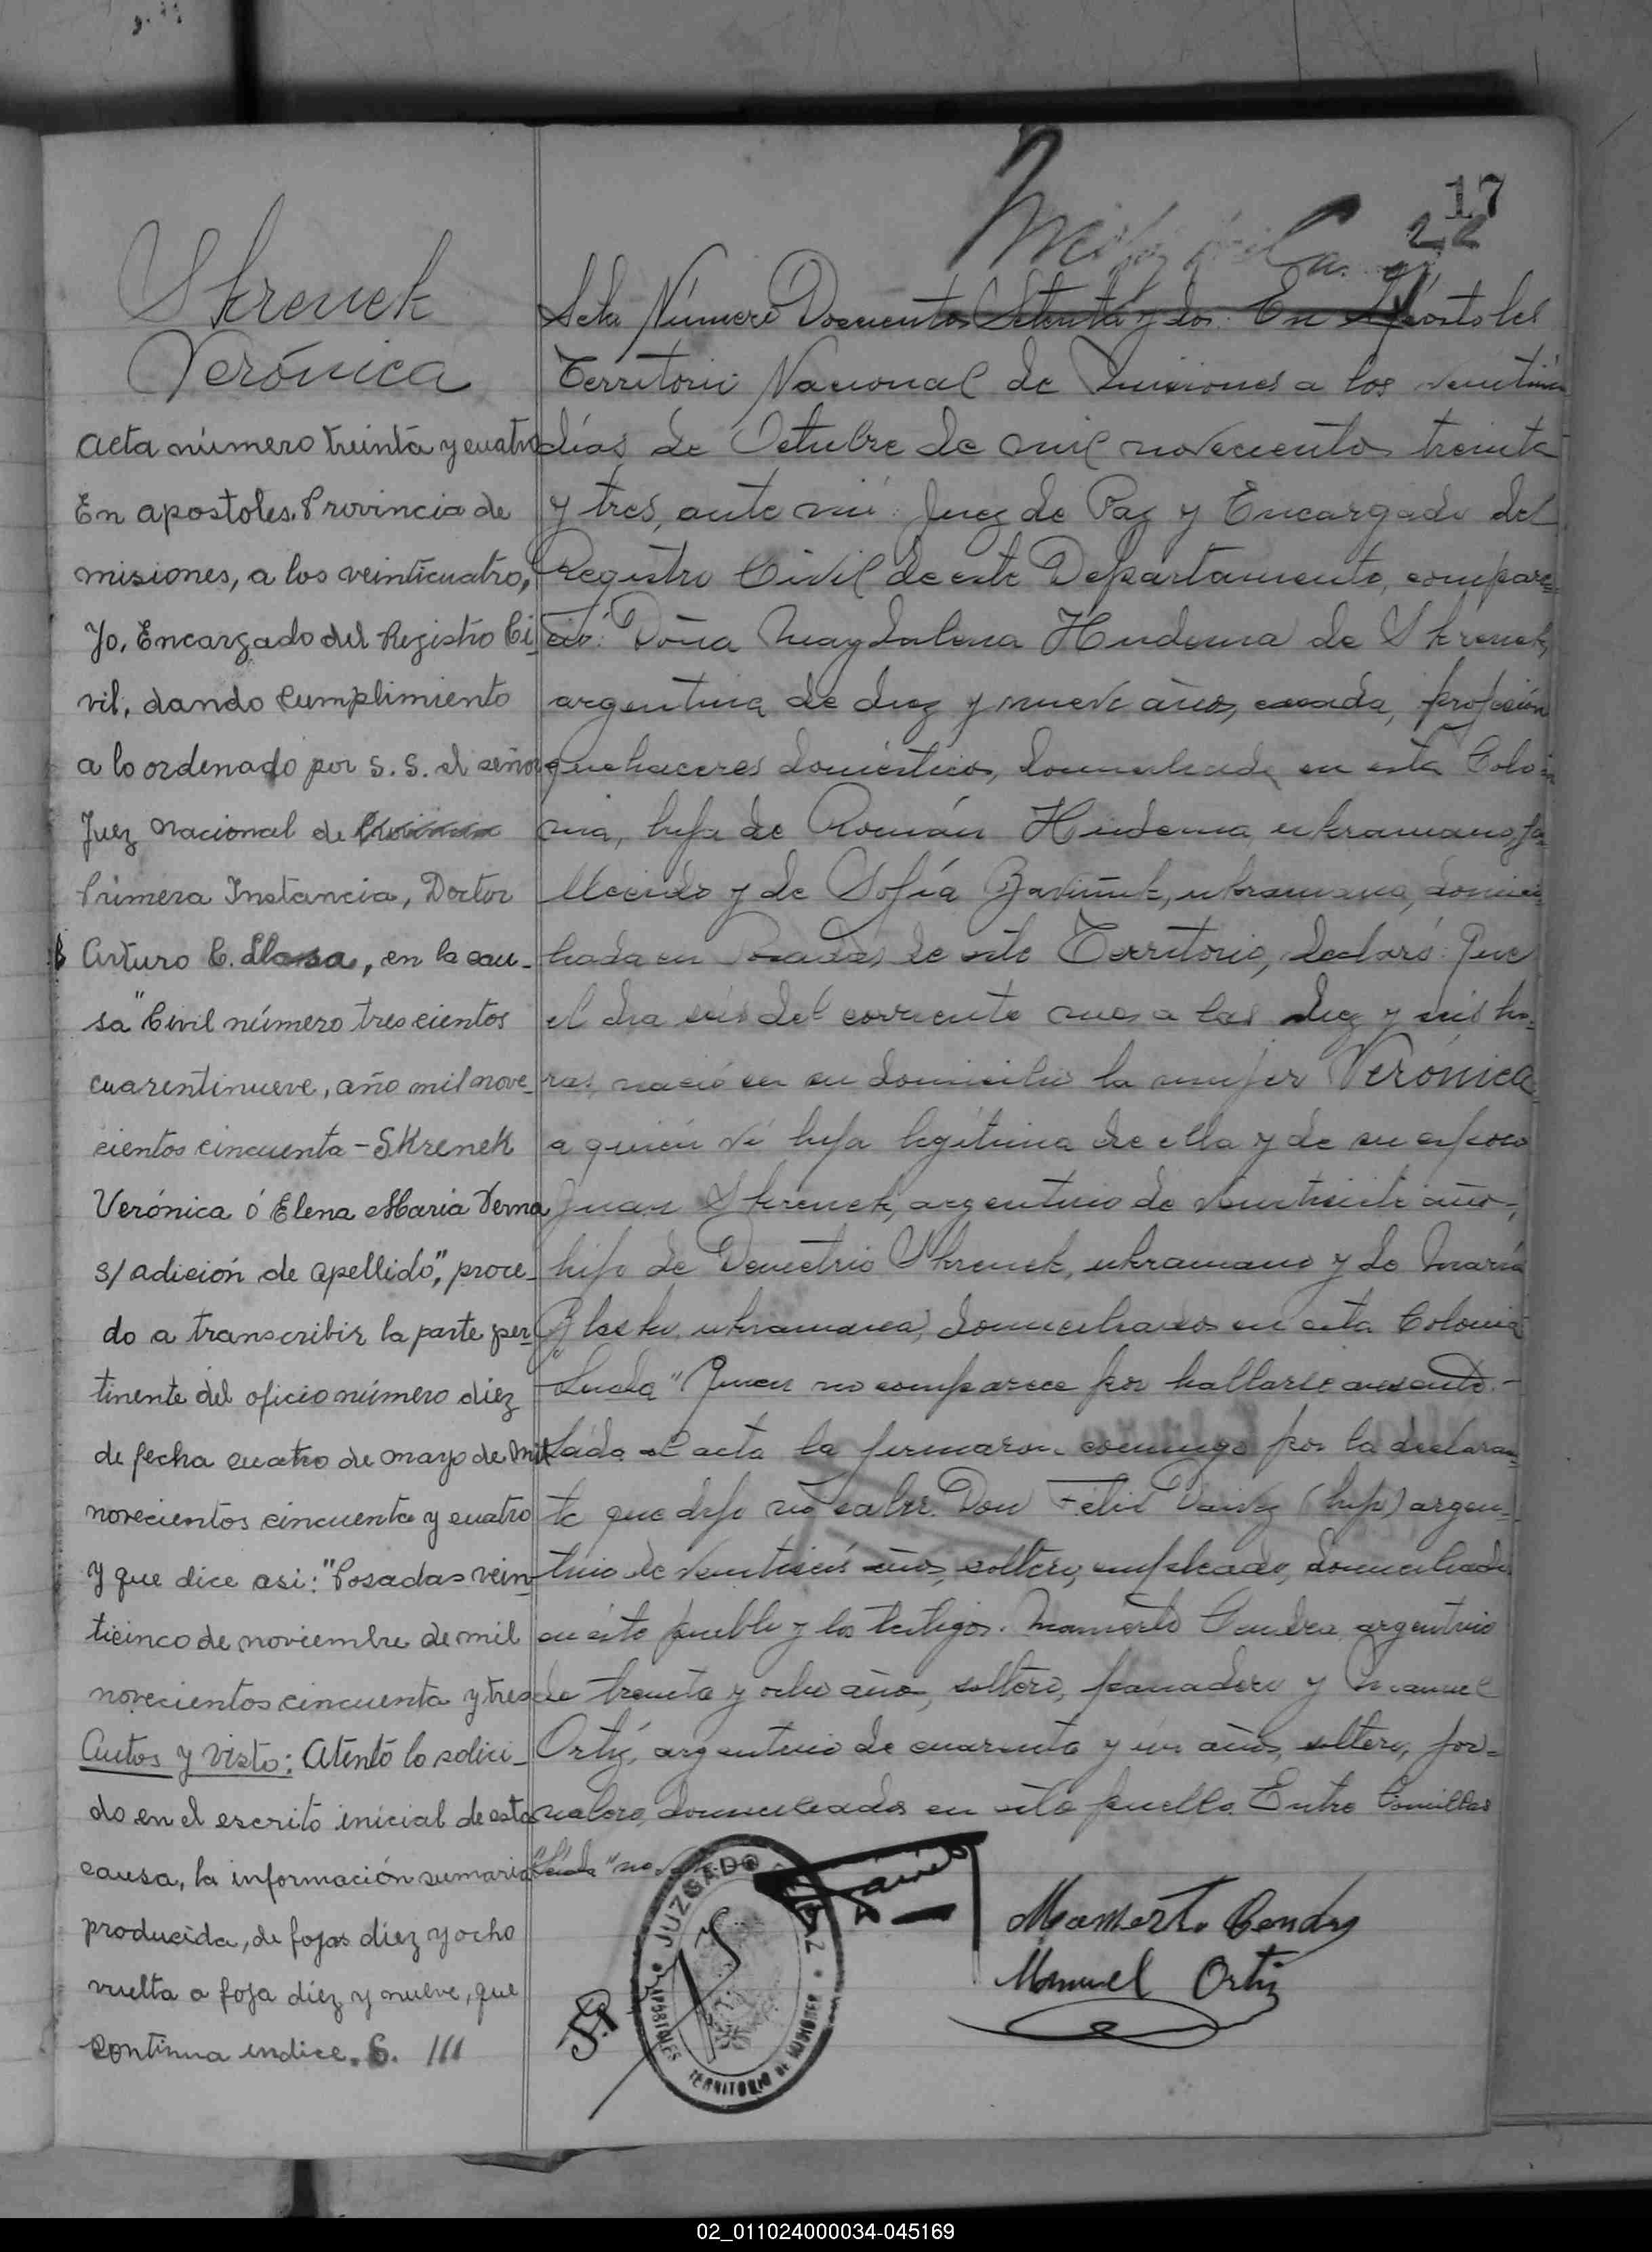 17
22
Skrenek
Verónica
Acta número treinta y cuatro
En apostoles, Provincia de
misiones, a los veinticuatro,
Yo, Encargado del Registro Ci-
vil, dando cumplimiento
a lo ordenado por S. S. el señor
Juez Nacional de
Primera Instancia, Doctor
Arturo C. Llosa, en la cau-
sa "Civil número trescientos
cuarentinueve, año mil nove-
cientos cincuenta - Skrenek
Verónica ó Elena Maria Derna
s/ adición de apellido", proce-
do a transcribir la parte per-
tinente del oficio número diez
de fecha cuatro de mayo de mil
novecientos cincuenta y cuatro
y que dice asi: "Posadas vein-
ticinco de noviembre de mil
novecientos cincuenta y tres
Autos y Visto: Atento lo solici-
do en el escrito inicial de esta
causa, la información sumaria
producida, de fojas diez y ocho
vuelta a foja diez y nueve, que
continua indice. 6. ///
Acta Número Doscientos Setenta y dos. En Apóstoles
Territorio Nacional de Misiones a los veintiun
días de Octubre de mil novecientos treinta
y tres, ante mí: Juez de Paz y Encargado del
Registro Civil de este Departamento, compare-
ció: Doña Magdalena Hudema de Skrenek,
argentina de diez y nueve años, casada, profesión
quehaceres domésticos, domiciliada en esta Colo-
nia, hija de Román Hudema, ukraniano, fa-
llecido y de Sofía, ukraniana, domici-
liada en Posadas de este Territorio, declaró: Que
el dia seis del corriente mes a las diez y seis ho-
ras, nació en su domicilio la mujer Verónica
a quien ví hija legítima de ella y de su esposo
Juan Skrenek, argentino de veintisiete años,
hijo de Demetrio Skrenek, ukraniano y de María
ukraniana, domiciliados en esta Colonia
"Lueda" Quien no comparece por hallarse ausente.-
Leida el acta la firmaron conmigo por la declaran-
te que dijo no saber Don Félix (hijo) argen-
tino de veintiseis años, soltero, empleado, domiciliado
en este pueblo y los testigos. Mamerto Gendra argentino
de treinta y ocho años, soltero, panadero y Manuel
Ortiz, argentino de cuarenta y un años, soltero, jor-
nalero, domiciliados en este pueblo. Entre Comillas
"Lueda" no
JUZGADO DE PAZ
APOSTOLES TERRITORIO DE MISIONES
Manuel Ortiz
02_011024000034-045169